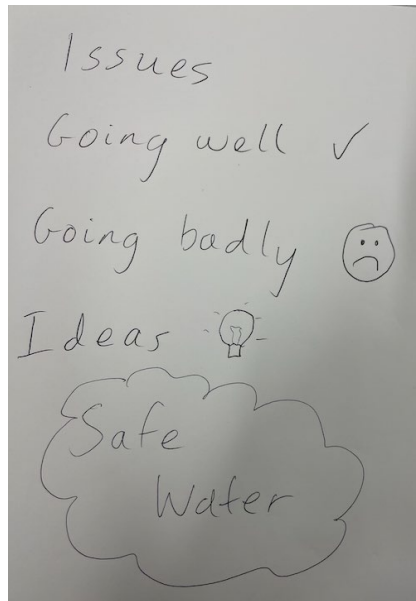 Issues
Going well ✓
Going badly
Ideas
Safe
Water